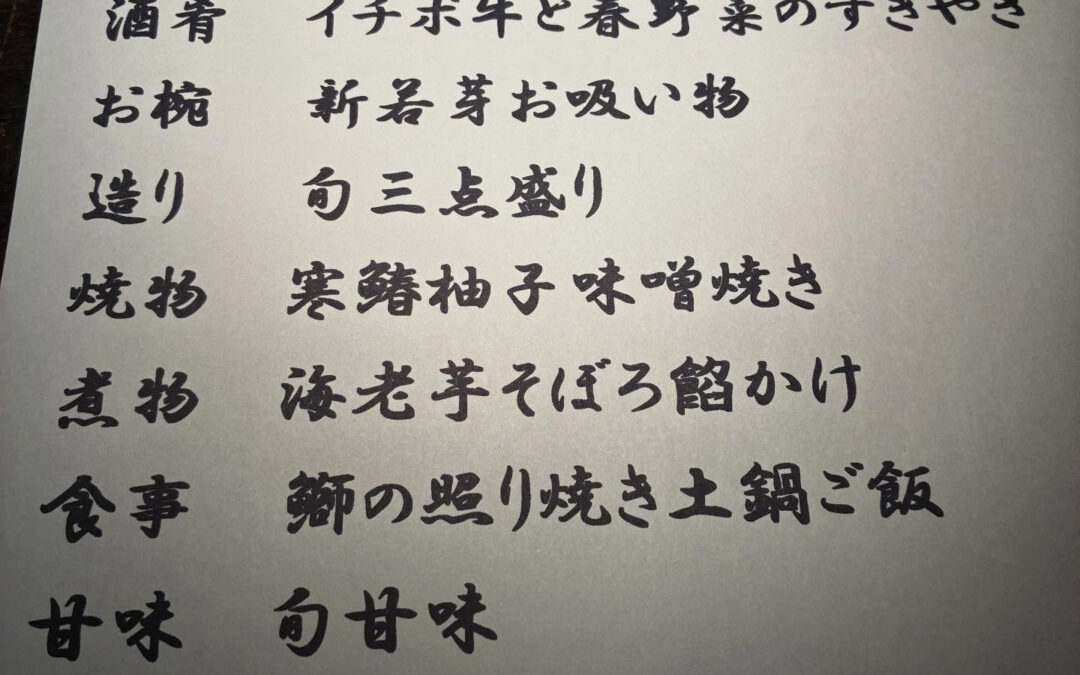 酒肴 イチボ牛と春野菜のすきやき
お椀 新若芽お吸い物
造り 旬三点盛り
焼物 寒鰆柚子味噌焼き
煮物 海老芋そぼろ餡かけ
食事 鰤の照り焼き土鍋ご飯
甘味 旬甘味